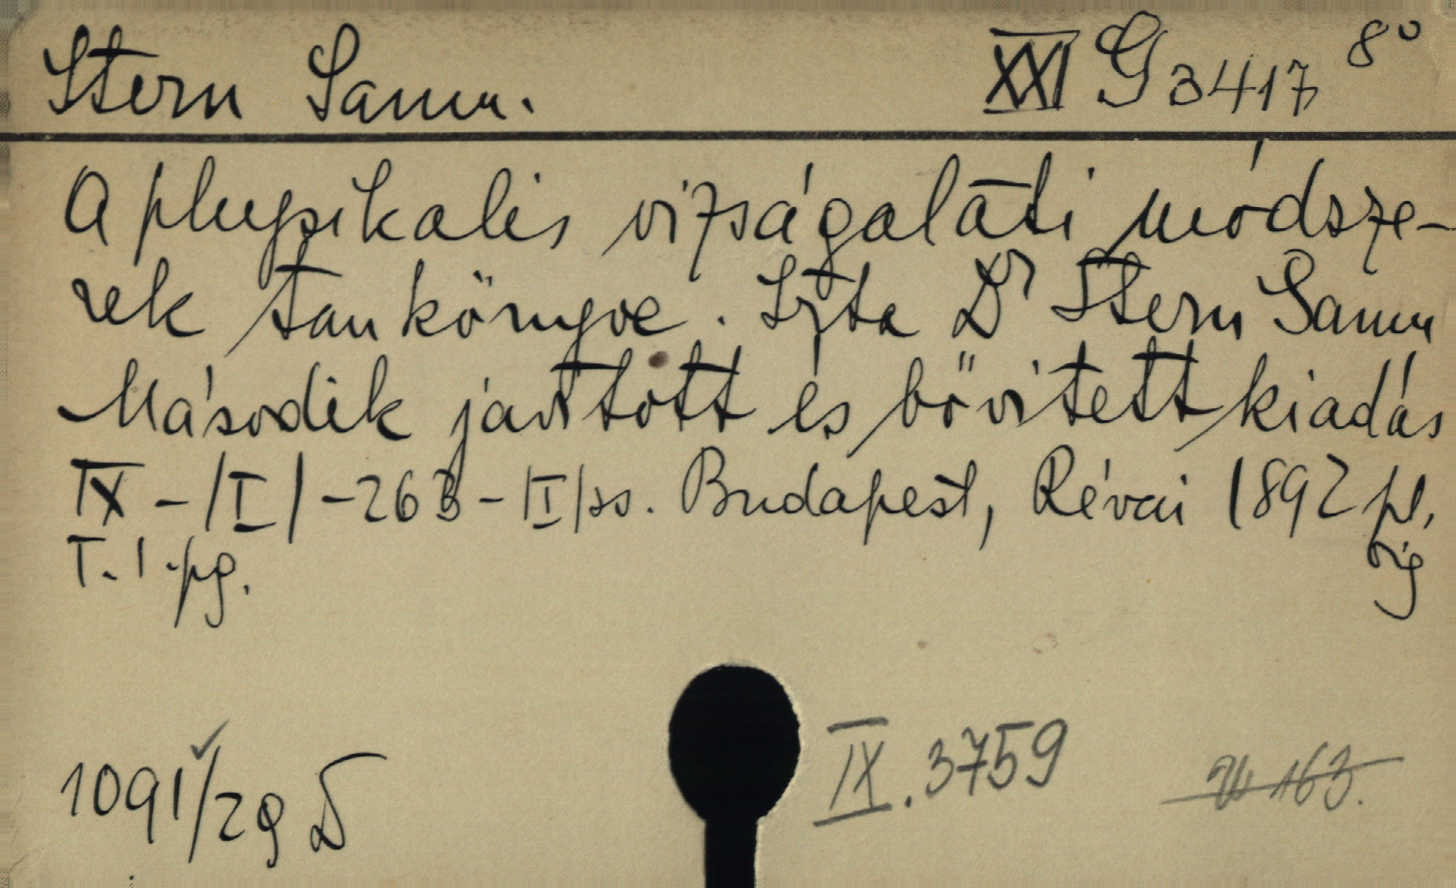 Stern Samu. XXI G 3417 8°
A physikalis vizsgálati módsze-
rek tankönyve. Irta Dr Stern Samu
Második javított és bővített kiadás
IX - /I/ - 263 - /I/ ss. Budapest, Révai 1892 pl,
T. 1. pg.
1091/29 D IX. 3759 163.